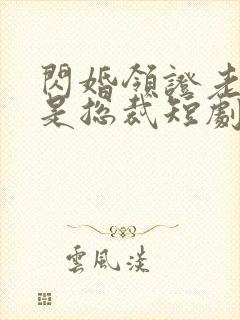 閃婚領證老
是總裁短劇
雲風淡